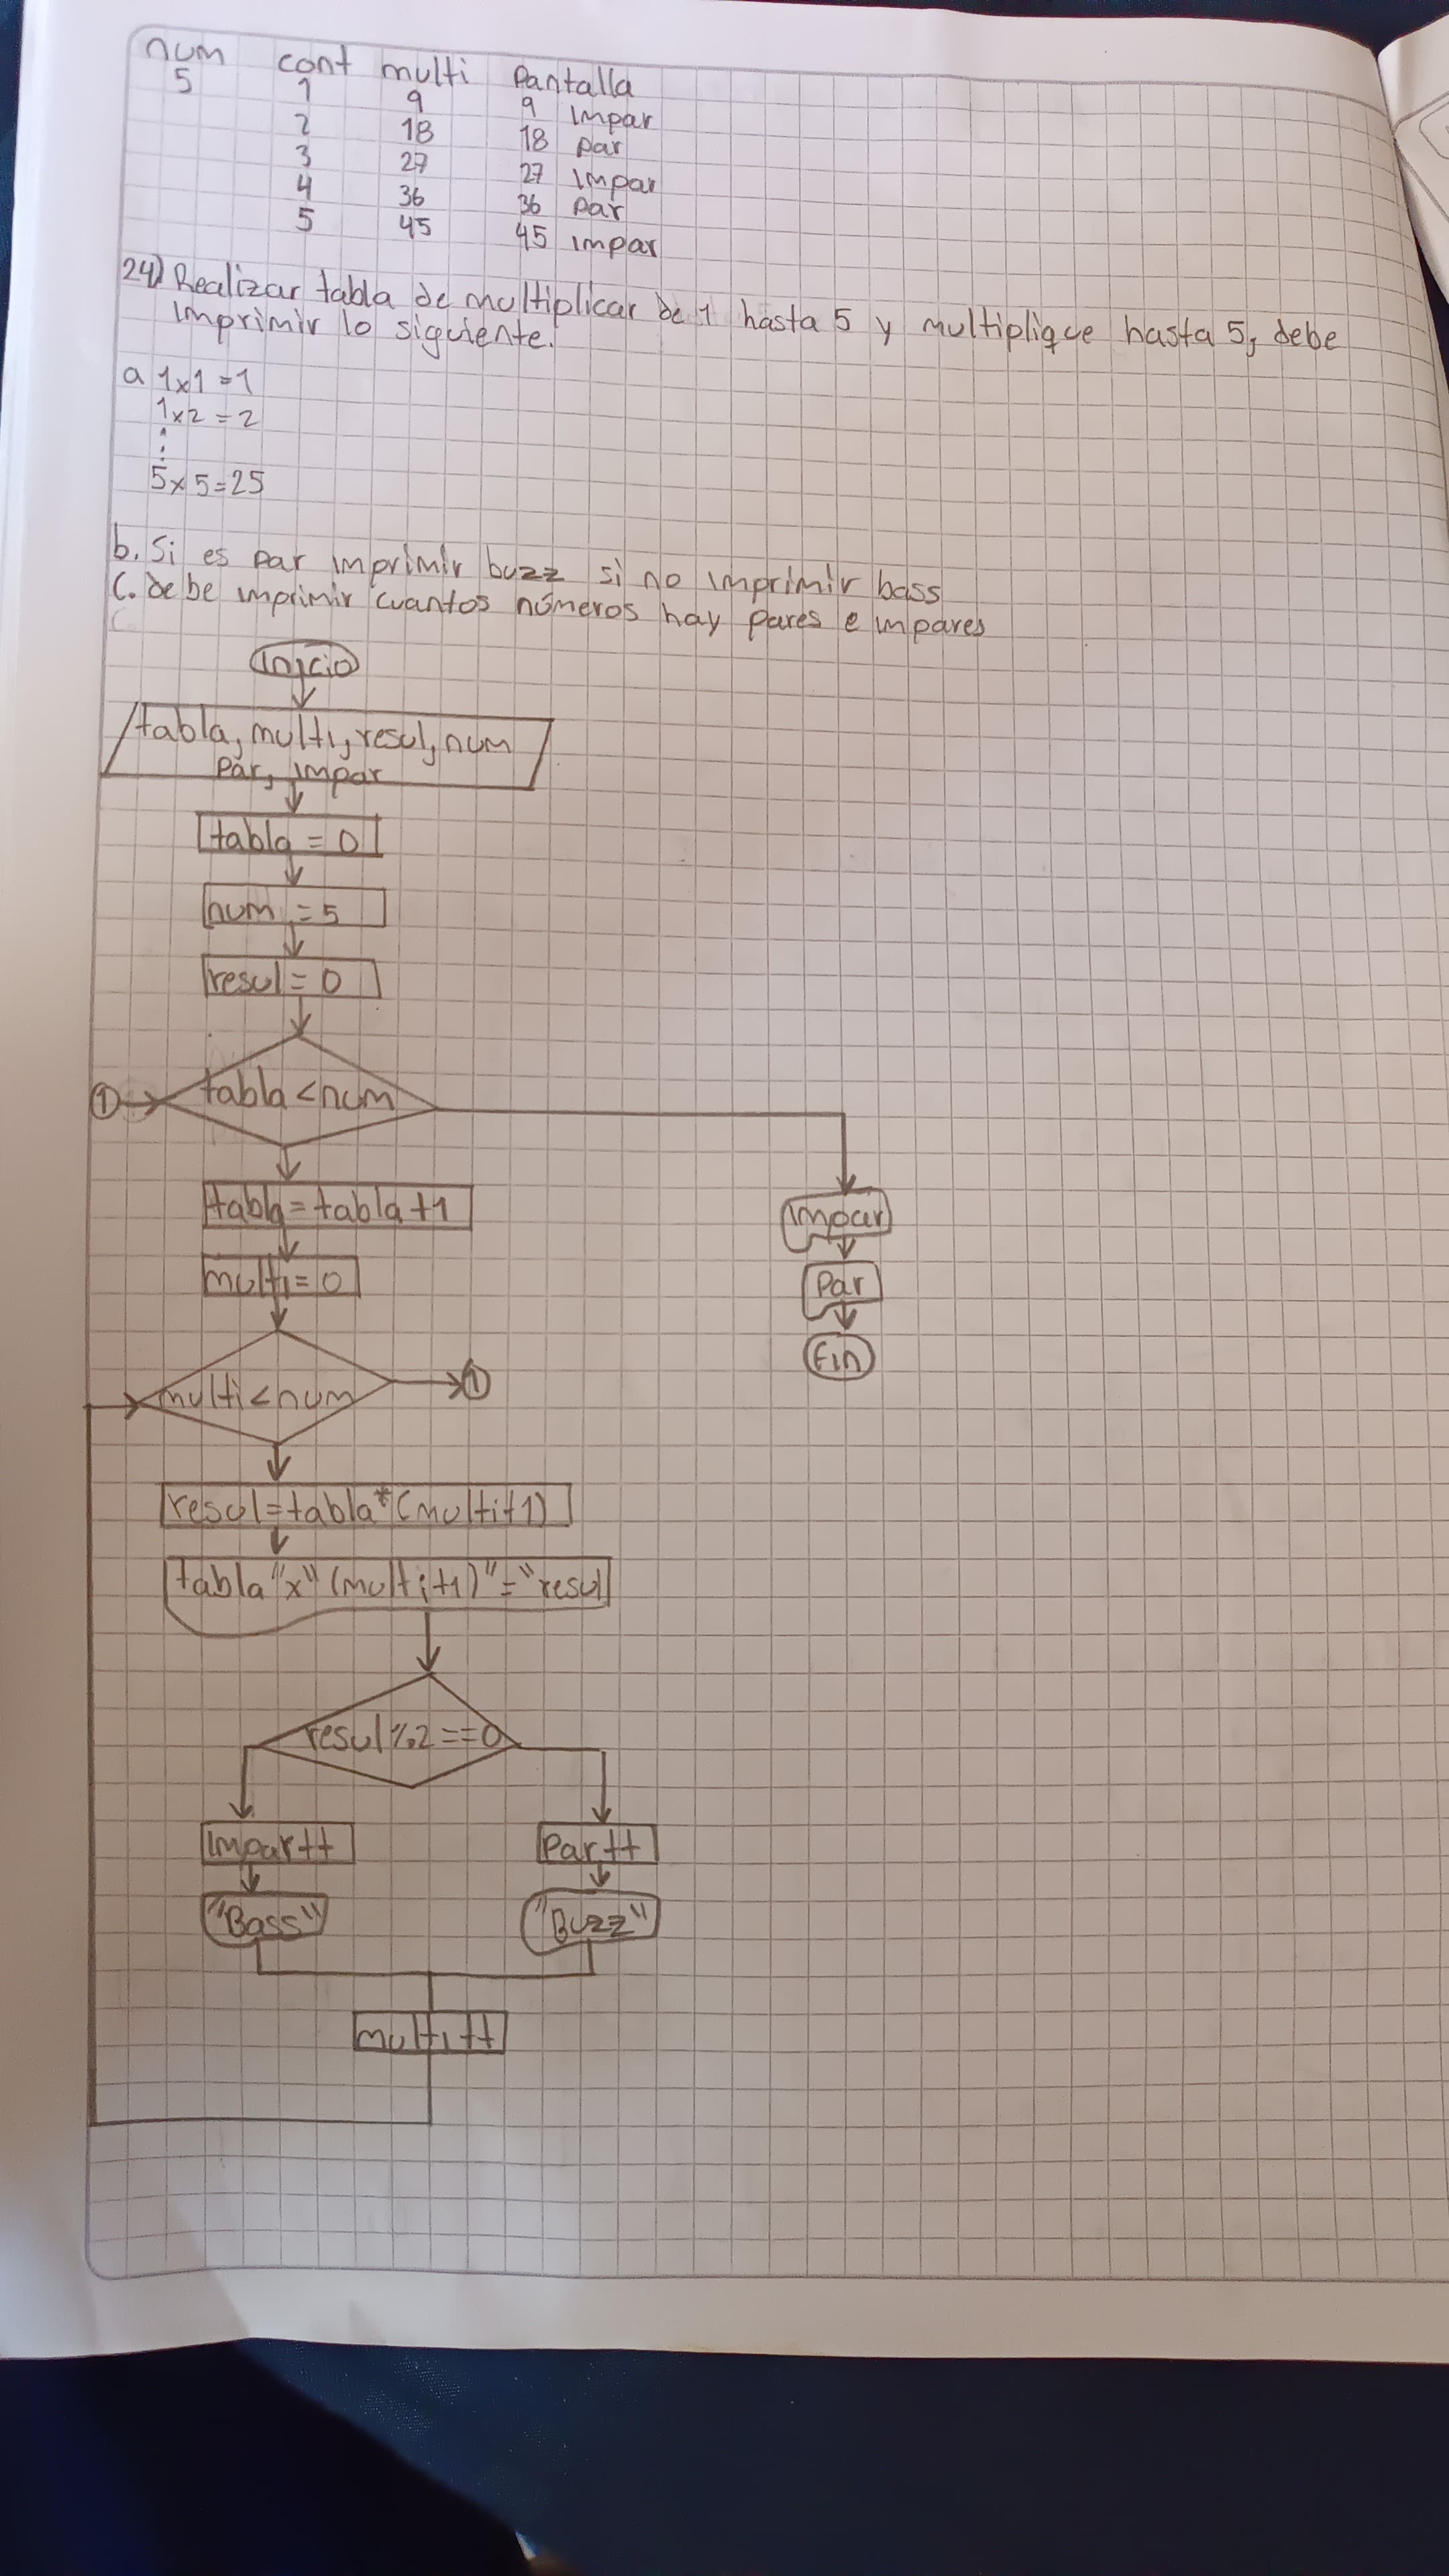 num cont multi Pantalla
5 1 9 9 Impar
2 18 18 Par
3 27 27 Impar
4 36 36 Par
5 45 45 impar
24) Realizar tabla de multiplicar de 1 hasta 5 y multiplique hasta 5, debe
imprimir lo siguiente.
a 1x1=1
1x2=2
⋮
5x5=25
b. Si es Par imprimir buzz si no imprimir bass
C. debe imprimir cuantos números hay pares e impares
Inicio
tabla, multi, resul, num
Par, impar
tabla = 0
num = 5
resul = 0
① tabla < num
tabla = tabla + 1
Impar
multi = 0
Par
Fin
multi < num ①
resul = tabla * (multi+1)
tabla "x" (multi+1) "=" resul
resul % 2 == 0
Impar++ Par++
"Bass" "Buzz"
multi++